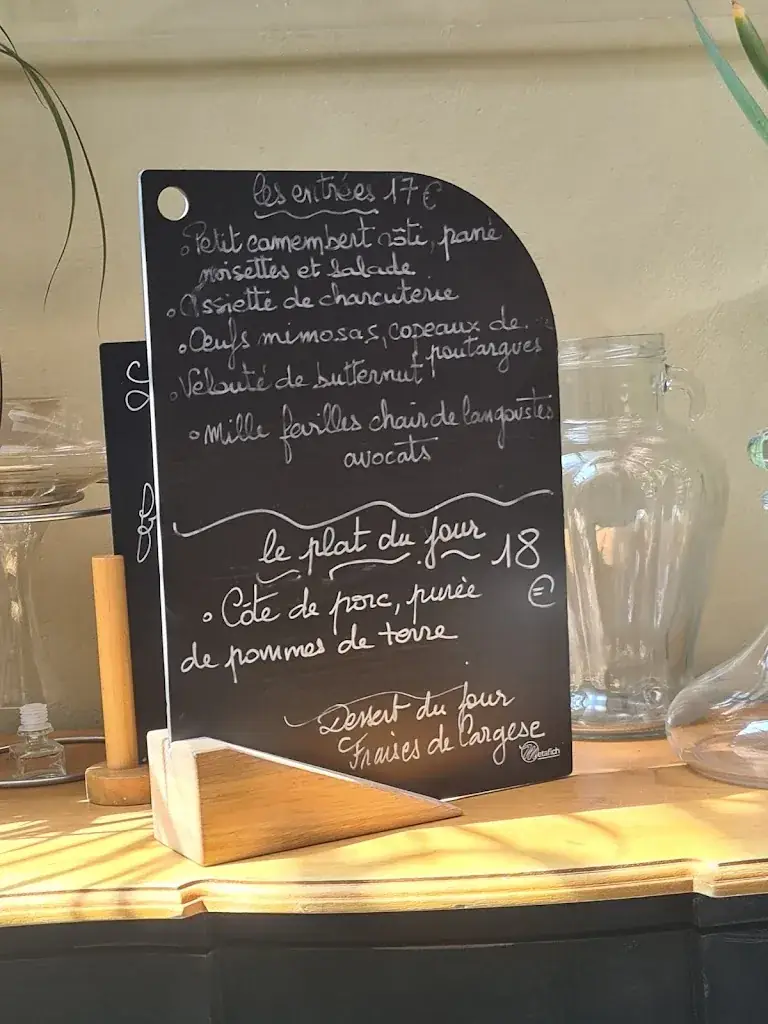 les entrées 17 €
Petit camembert rôti, pané
noisettes et salade
Assiette de charcuterie
Œufs mimosas, copeaux de
poutargues
Velouté de butternut
Mille feuilles chair de langoustes
avocats
le plat du jour 18
€
Côte de porc, purée
de pommes de terre
Dessert du jour
Fraises de Cargese